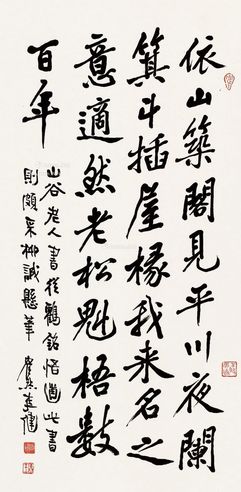 依山築閣見平川夜闌
箕斗插崖椽我来名之
意適然老松魁梧数
百年
山谷老人書從鶴銘悟道此書
則頗采柳誠懸筆